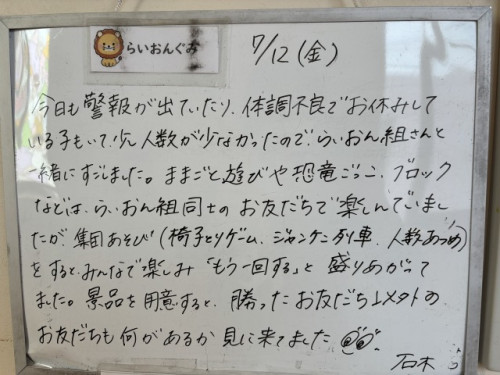 らいおんぐみ
7/12(金)
今日も警報が出ていたり、体調不良でお休みして
いる子もいて、少し人数が少なかったので、らいおん組さんと
一緒にすごしました。ままごと遊びや恐竜ごっこ、ブロック
などは、らいおん組同士のお友だちで楽しんでいまし
たが、集団あそび(椅子とりゲーム、ジャンケン列車、人数あつめ)
をすると、みんなで楽しみ「もう一回する」と盛りあがって
ました。景品を用意すると、勝ったお友だち以外の
お友だちも何があるか見に来てました
石木